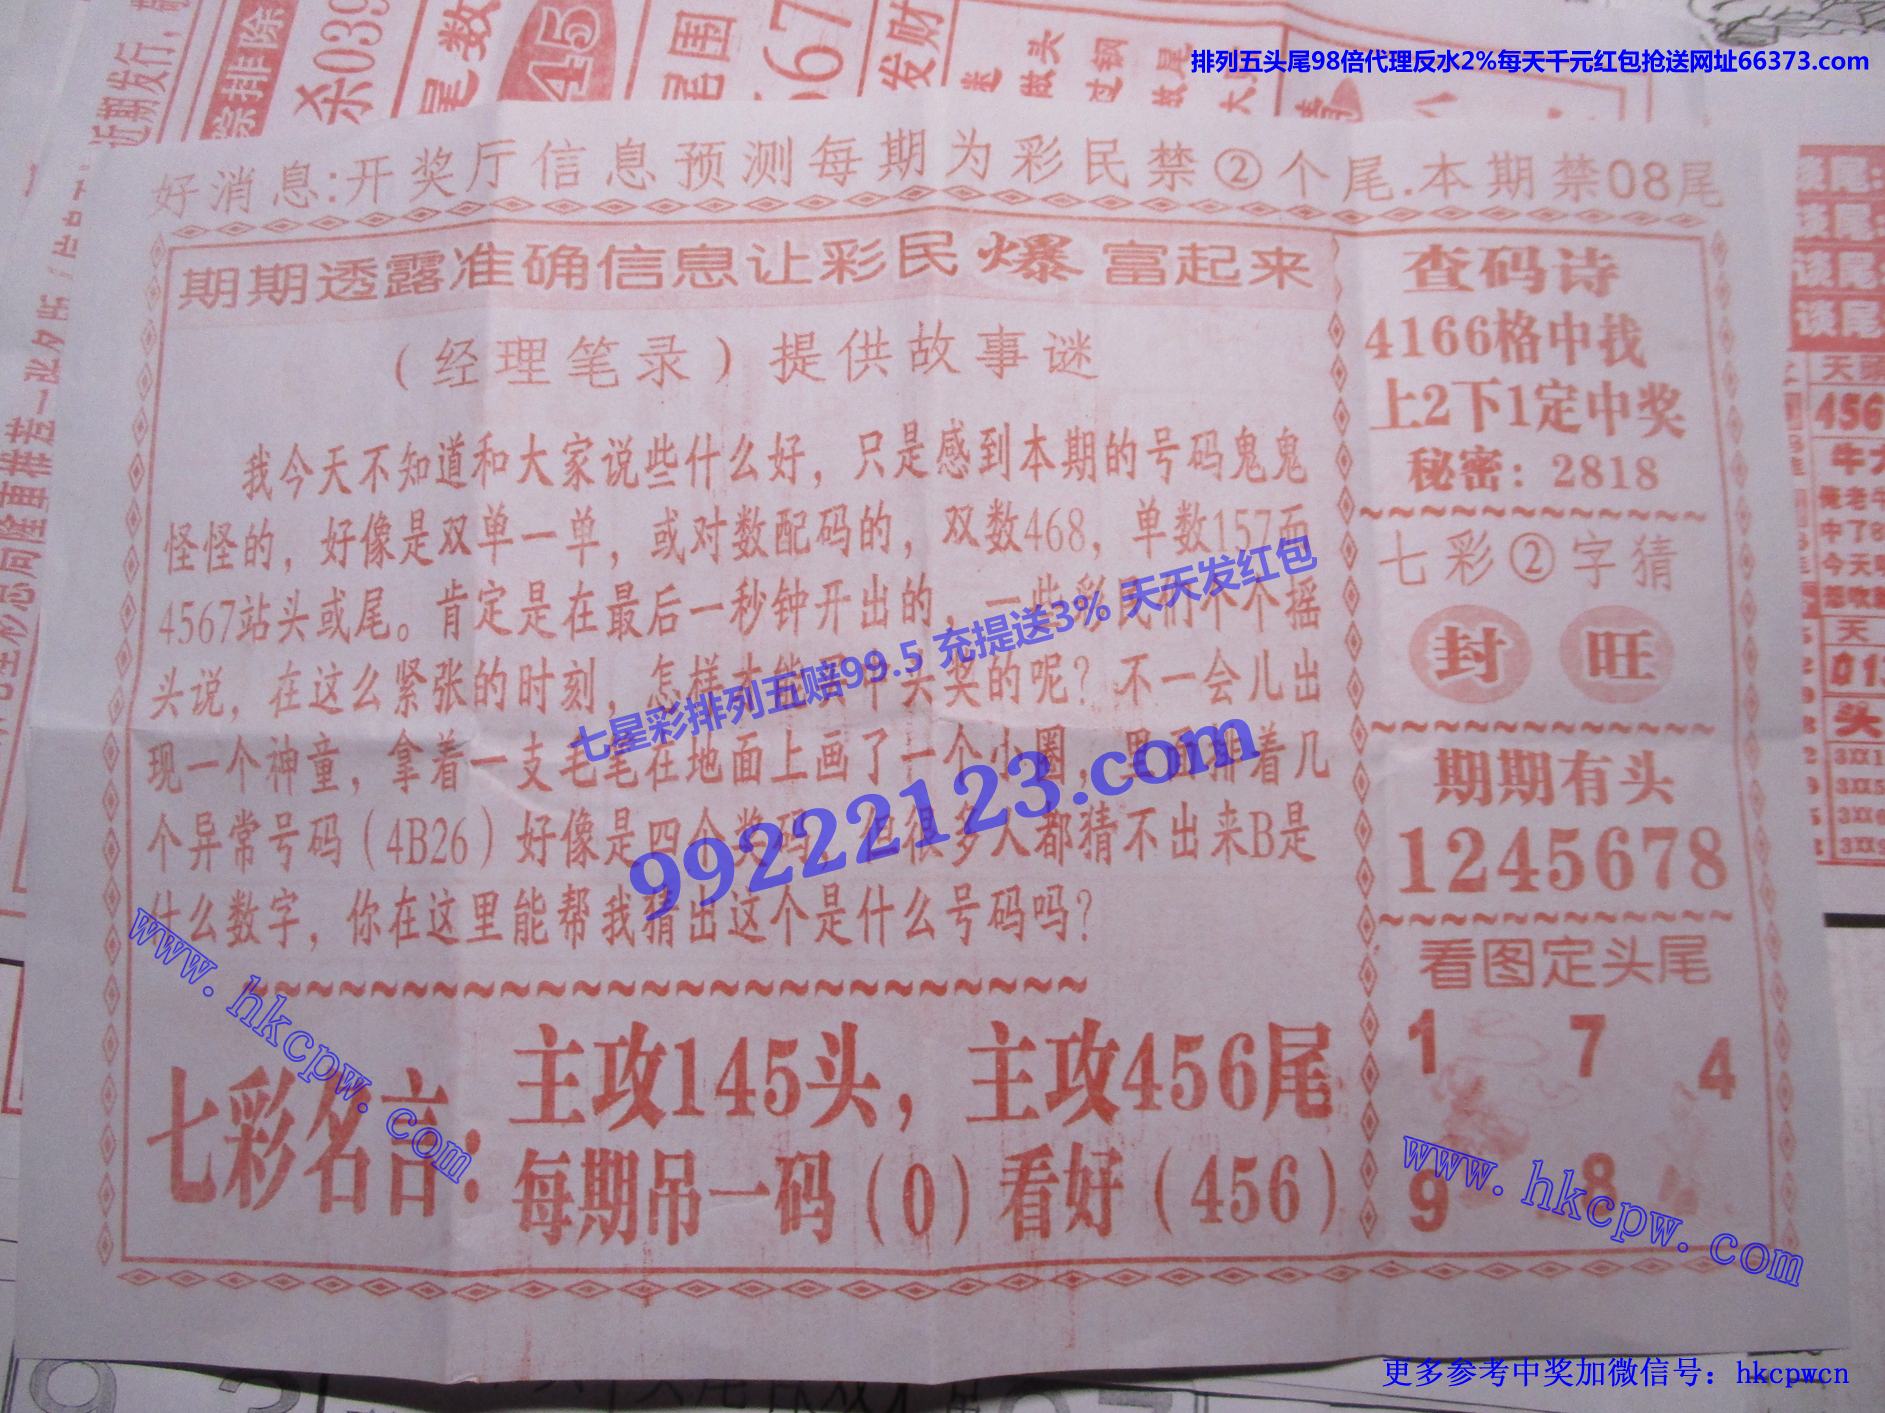 排列五头尾98倍代理反水2%每天千元红包抢送网址66373.com
综排除
杀039
尾数
45
尾围
567
发财
好消息:开奖厅信息预测每期为彩民禁②个尾.本期禁08尾
期期透露准确信息让彩民爆富起来
(经理笔录)提供故事谜
我今天不知道和大家说些什么好，只是感到本期的号码鬼鬼
怪怪的，好像是双单一单，或对数配码的，双数468，单数157而
4567站头或尾。肯定是在最后一秒钟开出的，一些彩民们个个摇
头说，在这么紧张的时刻，怎样才能 中头奖的呢？不一会儿出
现一个神童，拿着一支毛笔在地面上画了一个小圈，里面排着几
个异常号码(4B26)好像是四个奖码，但很多人都猜不出来B是
什么数字，你在这里能帮我猜出这个是什么号码吗？
七彩名言:
主攻145头，主攻456尾
每期吊一码(0)看好(456)
查码诗
4166格中找
上2下1定中奖
秘密：2818
七彩②字猜
封 旺
期期有头
1245678
看图定头尾
1 7 4
9 8
七星彩排列五赔99.5 充提送3% 天天发红包
99222123.com
www.hkcpw.com
www.hkcpw.com
更多参考中奖加微信号：hkcpwcn